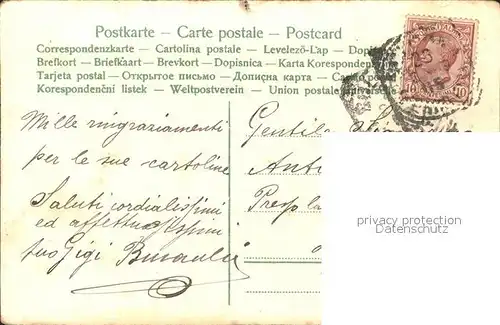 Postkarte — Carte postale — Postcard
Correspondenzkarte — Cartolina postale — Levelező-Lap — Dopis
Brefkort — Briefkaart — Brevkort — Dopisnica — Karta Korespondenc
Tarjeta postal — Открытое письмо — Дописна карта — Cart postal
Korespondenční listek — Weltpostverein — Union postale universelle
10 10
Mille ringraziamenti
per le sue cartoline
Saluti cordialissimi
ed affettuosissimi
tuo Gigi
Gentile
Ant
Presso la
privacy protection
Datenschutz